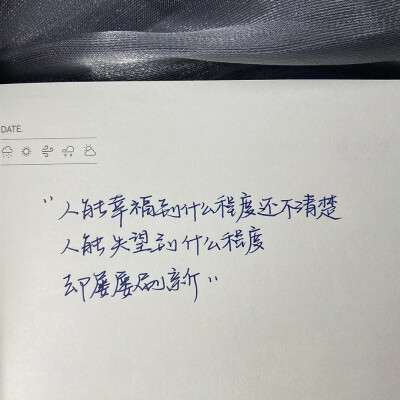 DATE.
"人能幸福到什么程度还不清楚
人能失望到什么程度
却屡屡刷新"